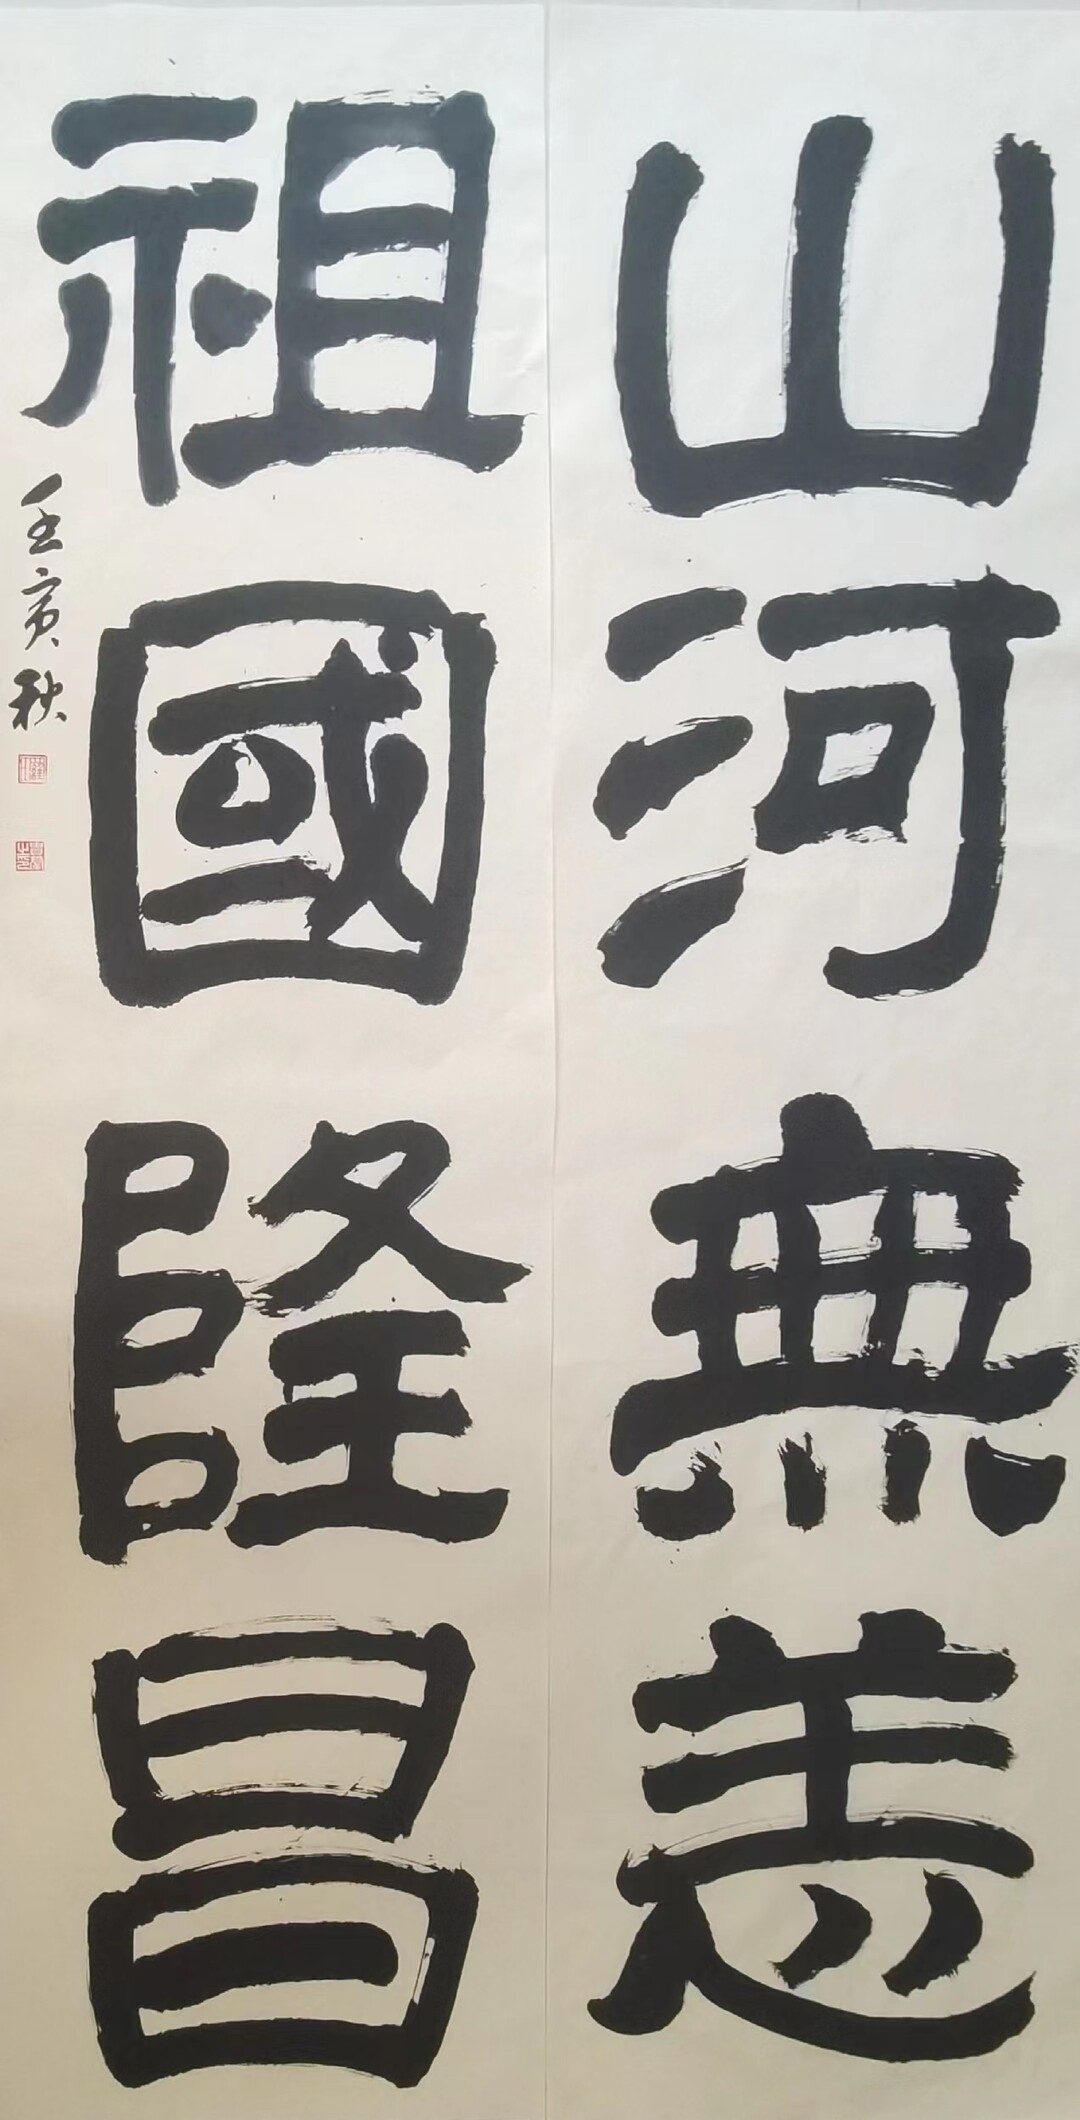 山河無恙
祖國隆昌
壬寅秋